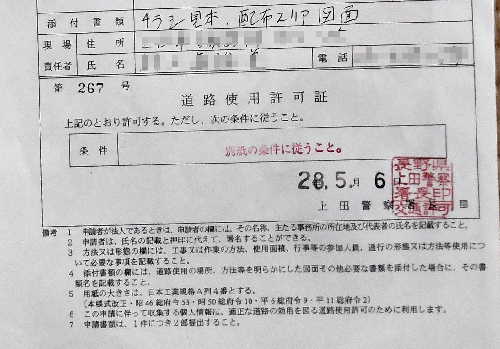 添付書類 チラシ見本、配布エリア図面
現場 住所
責任者 氏名 電話
第 267 号
道路使用許可証
上記のとおり許可する。ただし、次の条件に従うこと。
条件 別紙の条件に従うこと。
28.5月6日
上田警察署長
長野県
上田警察
署長印
交通許可
備考 1 申請者が法人であるときは、申請者の欄には、その名称、主たる事務所の所在地及び代表者の氏名を記載すること。
2 申請者は、氏名の記載と押印に代えて、署名することができる。
3 方法又は形態の欄には、工事又は作業の方法、使用面積、行事等の参加人員、通行の形態又は方法等使用について必要な事項を記載すること。
4 添付書類の欄には、道路使用の場所、方法等を明らかにした図面その他必要な書類を添付した場合に、その書類名を記載すること。
5 用紙の大きさは、日本工業規格A列4番とする。
(本様式改正・昭46総府令53・昭50総府令10・平6総府令9・平11総府令2)
6 この申請に伴って収集する個人情報は、適正な道路の効用を図る道路使用許可のために利用します。
7 申請書類は、1件につき2部提出すること。